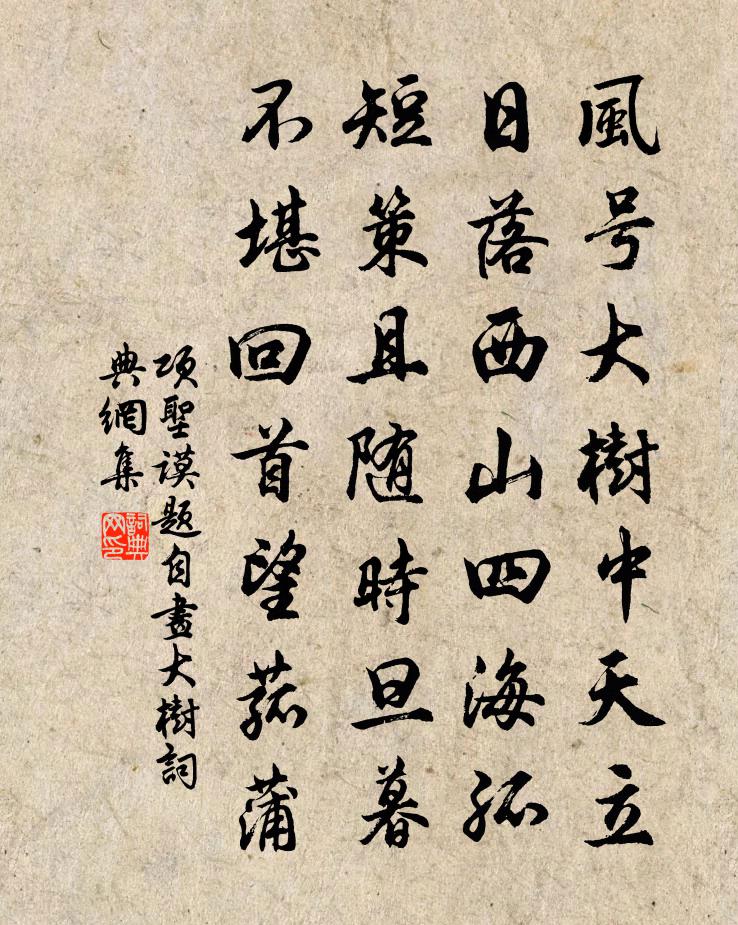 風号大樹中天立
日落西山四海孤
短策且随時旦暮
不堪回首望菰蒲
項聖謨題自畫大樹詞
典網集
詞典网印